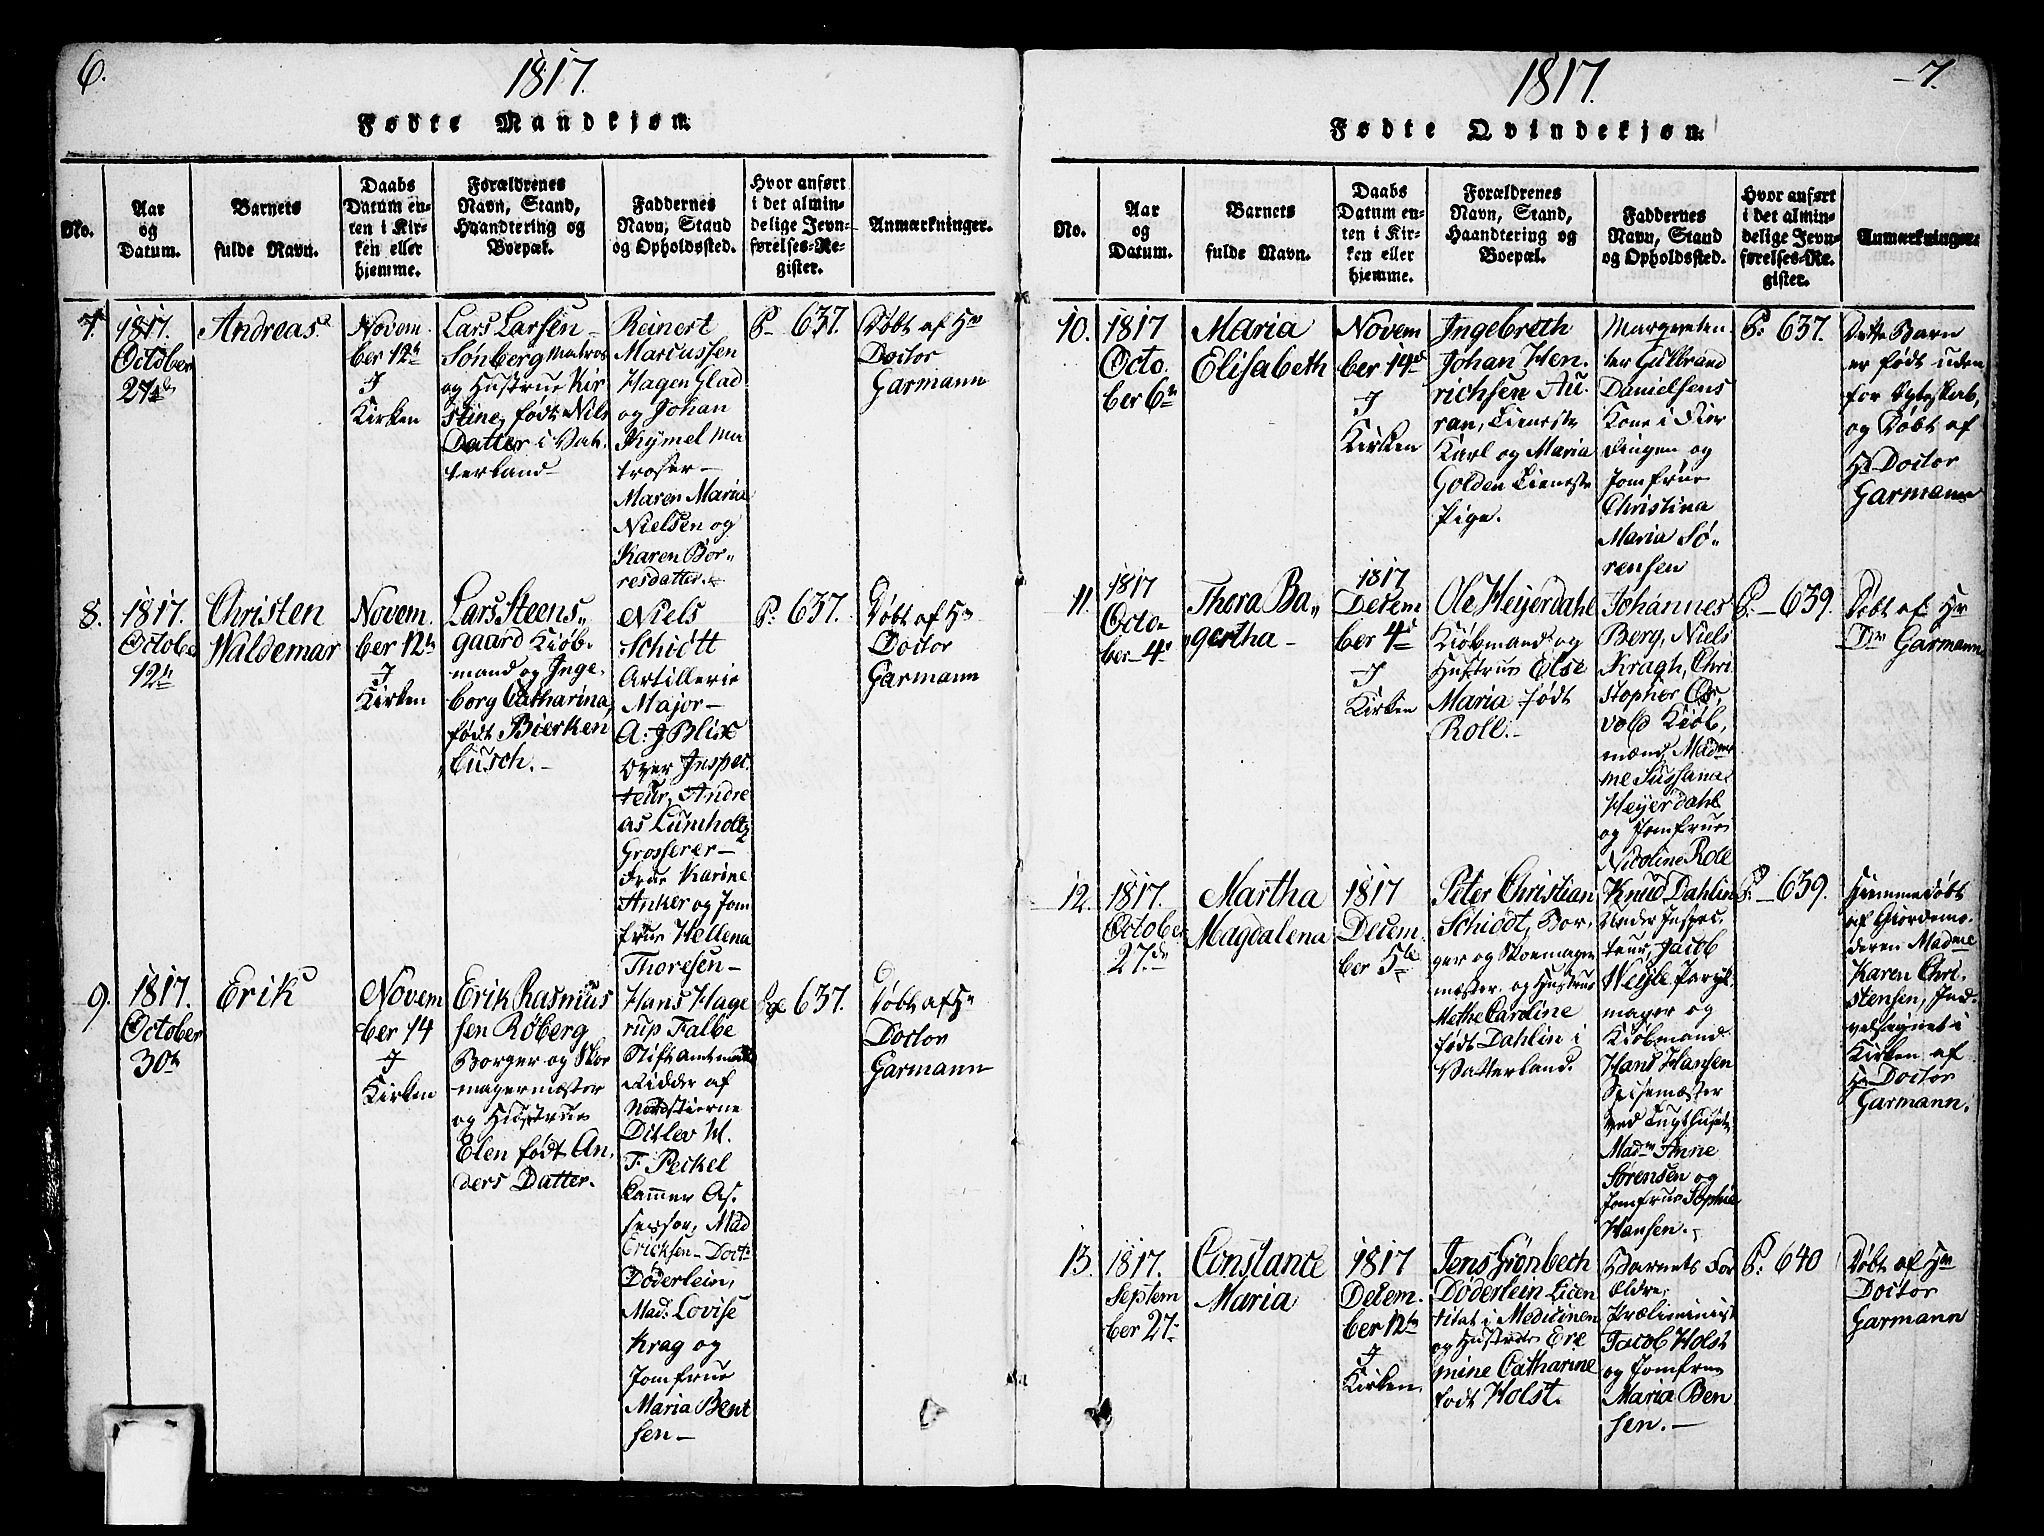 6.
1817.
Fødte Mandkjøn.
No.
Aar
og
Datum.
Barnets
fulde Navn.
Daabs
Datum en-
ten i Kir-
ken eller
hjemme.
Forældrenes
Navn, Stand,
Haandtering og
Boepæl.
Faddernes
Navn, Stand
og Opholdssted.
Hvor anført
i det almin-
delige Jevn-
førelses-Re-
gister.
Anmærkninger.
7.
1817.
October
27de
Andreas
Novem
ber 12te
I
Kirken
Lars Larsen
Sønberg Matros
og Hustrue Kir
stine, født Niels
Datter i Vat
terland
Reinert
Marcussen
Hagen Glad
og Johan
Kymel Ma
troser
Maren Maria
Nielsen og
Karen Bor„
resdatter.
P. 637.
Døbt af Hr
Doctor
Garmann
8.
1817.
Octobe
12te
Christen
Waldemar
Novem
ber 12te
I
Kirken
Lars Steens„
gaard Kiøb„
mand og Inge„
borg Catharina,
født Bierken
busch.
Niels
Schiøtt
Artillerie
Major
A: J Blix
Over Inspec„
teur, Andre
as Lumholtz
Grosserer
Frue Karine
Anker og Jom
frue Hellena
Thoresen
P. 637.
Døbt af Hr
Doctor
Garmann
9.
1817.
October
30te
Erik
Novem
ber 14
I
Kirken
Erik Rasmus
sen Røberg
Borger og Skoe
magermester
og Hustrue
Elen født An„
ders Datter.
Hans Hage
rup Falbe
Stiftamtmand
Ridder af
Nordstierne
Ditlev W.
F. Peckel
Kammer As„
sessor, Mad
Ericksen Doctr
Døderlein,
Mad. Lovise
Krag og
Jomfrue
Maria Bent
sen
637.
Døbt af Hr
Doctor
Garmann
7.
1817.
Fødte Qvindekjøn.
No.
Aar
og
Datum.
Barnets
fulde Navn.
Daabs
Datum en-
ten i Kir-
ken eller
hjemme.
Forældrenes
Navn, Stand,
Haandtering og
Boepæl.
Faddernes
Navn, Stand
og Opholdssted.
Hvor anført
i det almin-
delige Jevn-
førelses-Re-
gister.
Anmærkninger.
10.
1817
Octo.
ber 6te
Maria
Elisabeth
Novem
ber 14de
I
Kirken
Ingebreth
Johan Hen„
richsen Au„
ran, Tieneste
Karl og Maria
Golden Tieneste
Pige.
Margreten
ter Gulbrand
Danielsens
Kone i Fier
dingen og
Jomfrue
Christina
Maria Sø„
rensen
P. 637.
Dette Barn
er født uden
for Egteskab,
og Døbt af
Hr Doctor
Garmann
11.
1817
Octo„
ber 4de
Thora Ba„
„gertha
1817
Decem
ber 4de
I
Kirken
Ole Heijerdahl
Kiøbmand og
Hustrue Else
Maria født
Roll.
Johannes
Berg, Niels
Kragh, Chri
stopher Os„
vold Kiøb„
mænd, Mad
me Sussana
Heyerdahl
og Jomfrue
Nicoline Roll
P. 639.
Døbt af Hr
Dr Garmann
12.
1817.
October
27de
Martha
Magdalena
1817
Decem„
ber 5te
Peter Christian
Schiøtt, Bor„
ger og Skoemager
mester og Hustrue
Methe Caroline
født Dahlin i
Vatterland.
Knud Dahlin
Under Inspec„
teur, Jacob
Weyle Paryk
mager og
Kiøbmand
Hans Hansen
Spisemester
ved Tugthuset,
Madme Anne
Sørensen og
Jomfrue Sophie
Hansen.
P. 639.
Hiemmedøbt
af Giordemo„
deren Madme
Karen Chri„
stensen, Ind„
velsignet i
Kirken af
Hr Doctor
Garmann.
13.
1817.
Septem
ber 27
Constance
Maria
1817
Decem.
ber 12te
I
Kirken
Jens Grønbech
Døderlein Licen
titat i Medicinen
og Hustrue Ere
mine Catharine
født Holst.
Barnets For
ældre,
Præliminist
Jacob Holst
og Jomfrue
Maria Ben
sen.
P. 640
Døbt af Hr
Doctor
Garmann